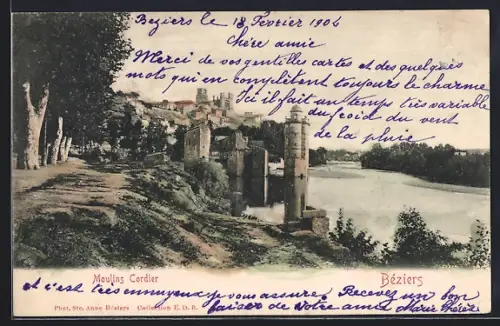 Beziers le 18 Fevrier 1904
Chère amie
Merci de vos gentilles cartes et des quelques
mots qui en complètent toujours le charme
Ici il fait un temps très variable
du froid du vent
de la pluie
Moulins Cordier
Béziers
et c'est très ennuyeux je vous assure. Recevez un bon
Phot. Ste. Anne Béziers Collection E. D. B.
baiser de votre amie Marie Thérèse